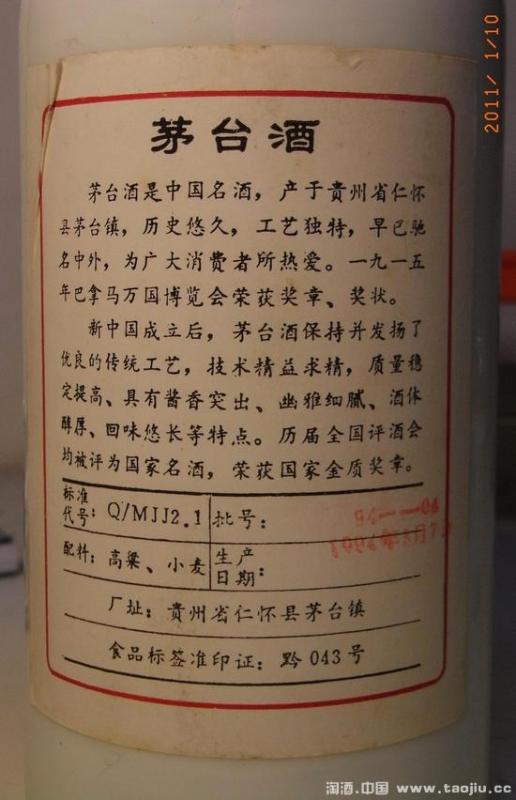 2011/ 1/10
茅台酒
茅台酒是中国名酒，产于贵州省仁怀
县茅台镇，历史悠久，工艺独特，早已驰
名中外，为广大消费者所热爱。一九一五
年巴拿马万国博览会荣获奖章、奖状。
新中国成立后，茅台酒保持并发扬了
优良的传统工艺，技术精益求精，质量稳
定提高、具有酱香突出、幽雅细腻、酒体
醇厚、回味悠长等特点。历届全国评酒会
均被评为国家名酒，荣获国家金质奖章。
标准代号：Q/MJJ2.1 批号：
配料：高粱、小麦 生产日期：
厂址：贵州省仁怀县茅台镇
食品标签准印证：黔043号
淘酒.中国 www.taojiu.cc